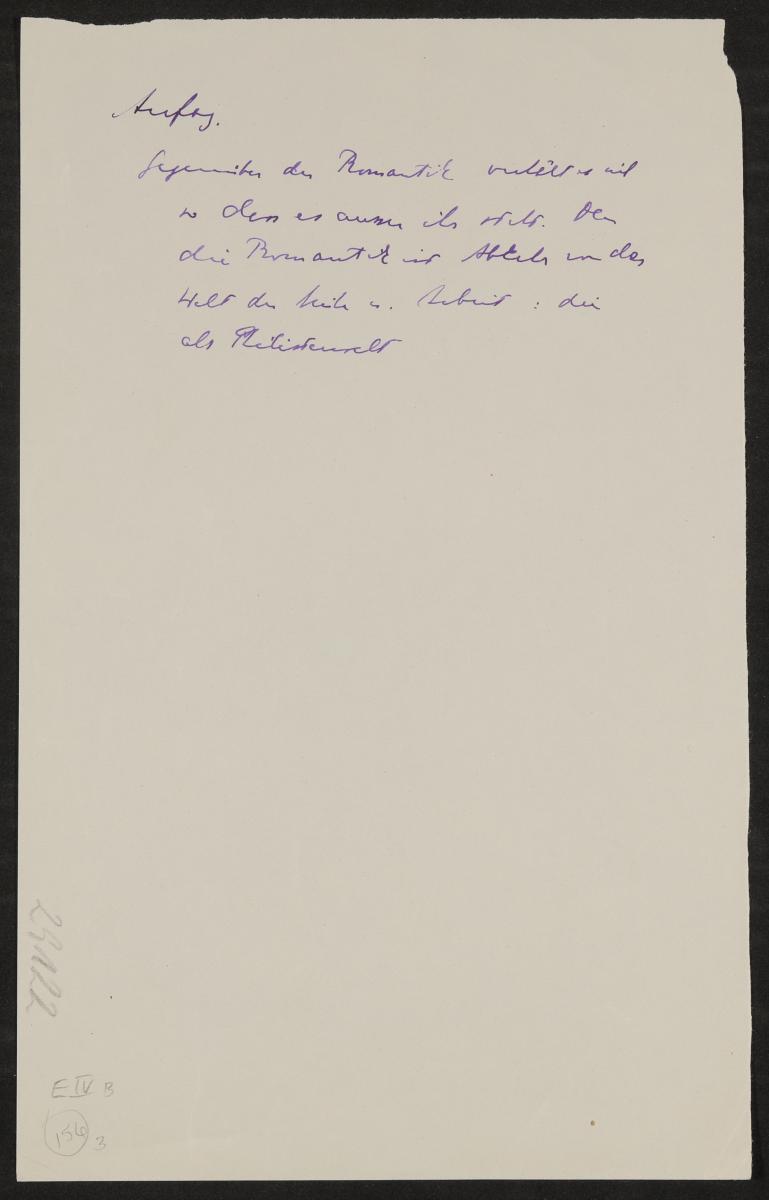 Anfang.
Gegenüber der Romantik verhält es sich
so dass es ausser ihr steht. Den
die Romantik ist Abkehr von der
Welt der u. Arbeit : die
als Philisterwelt
29122
E IV B
156
3